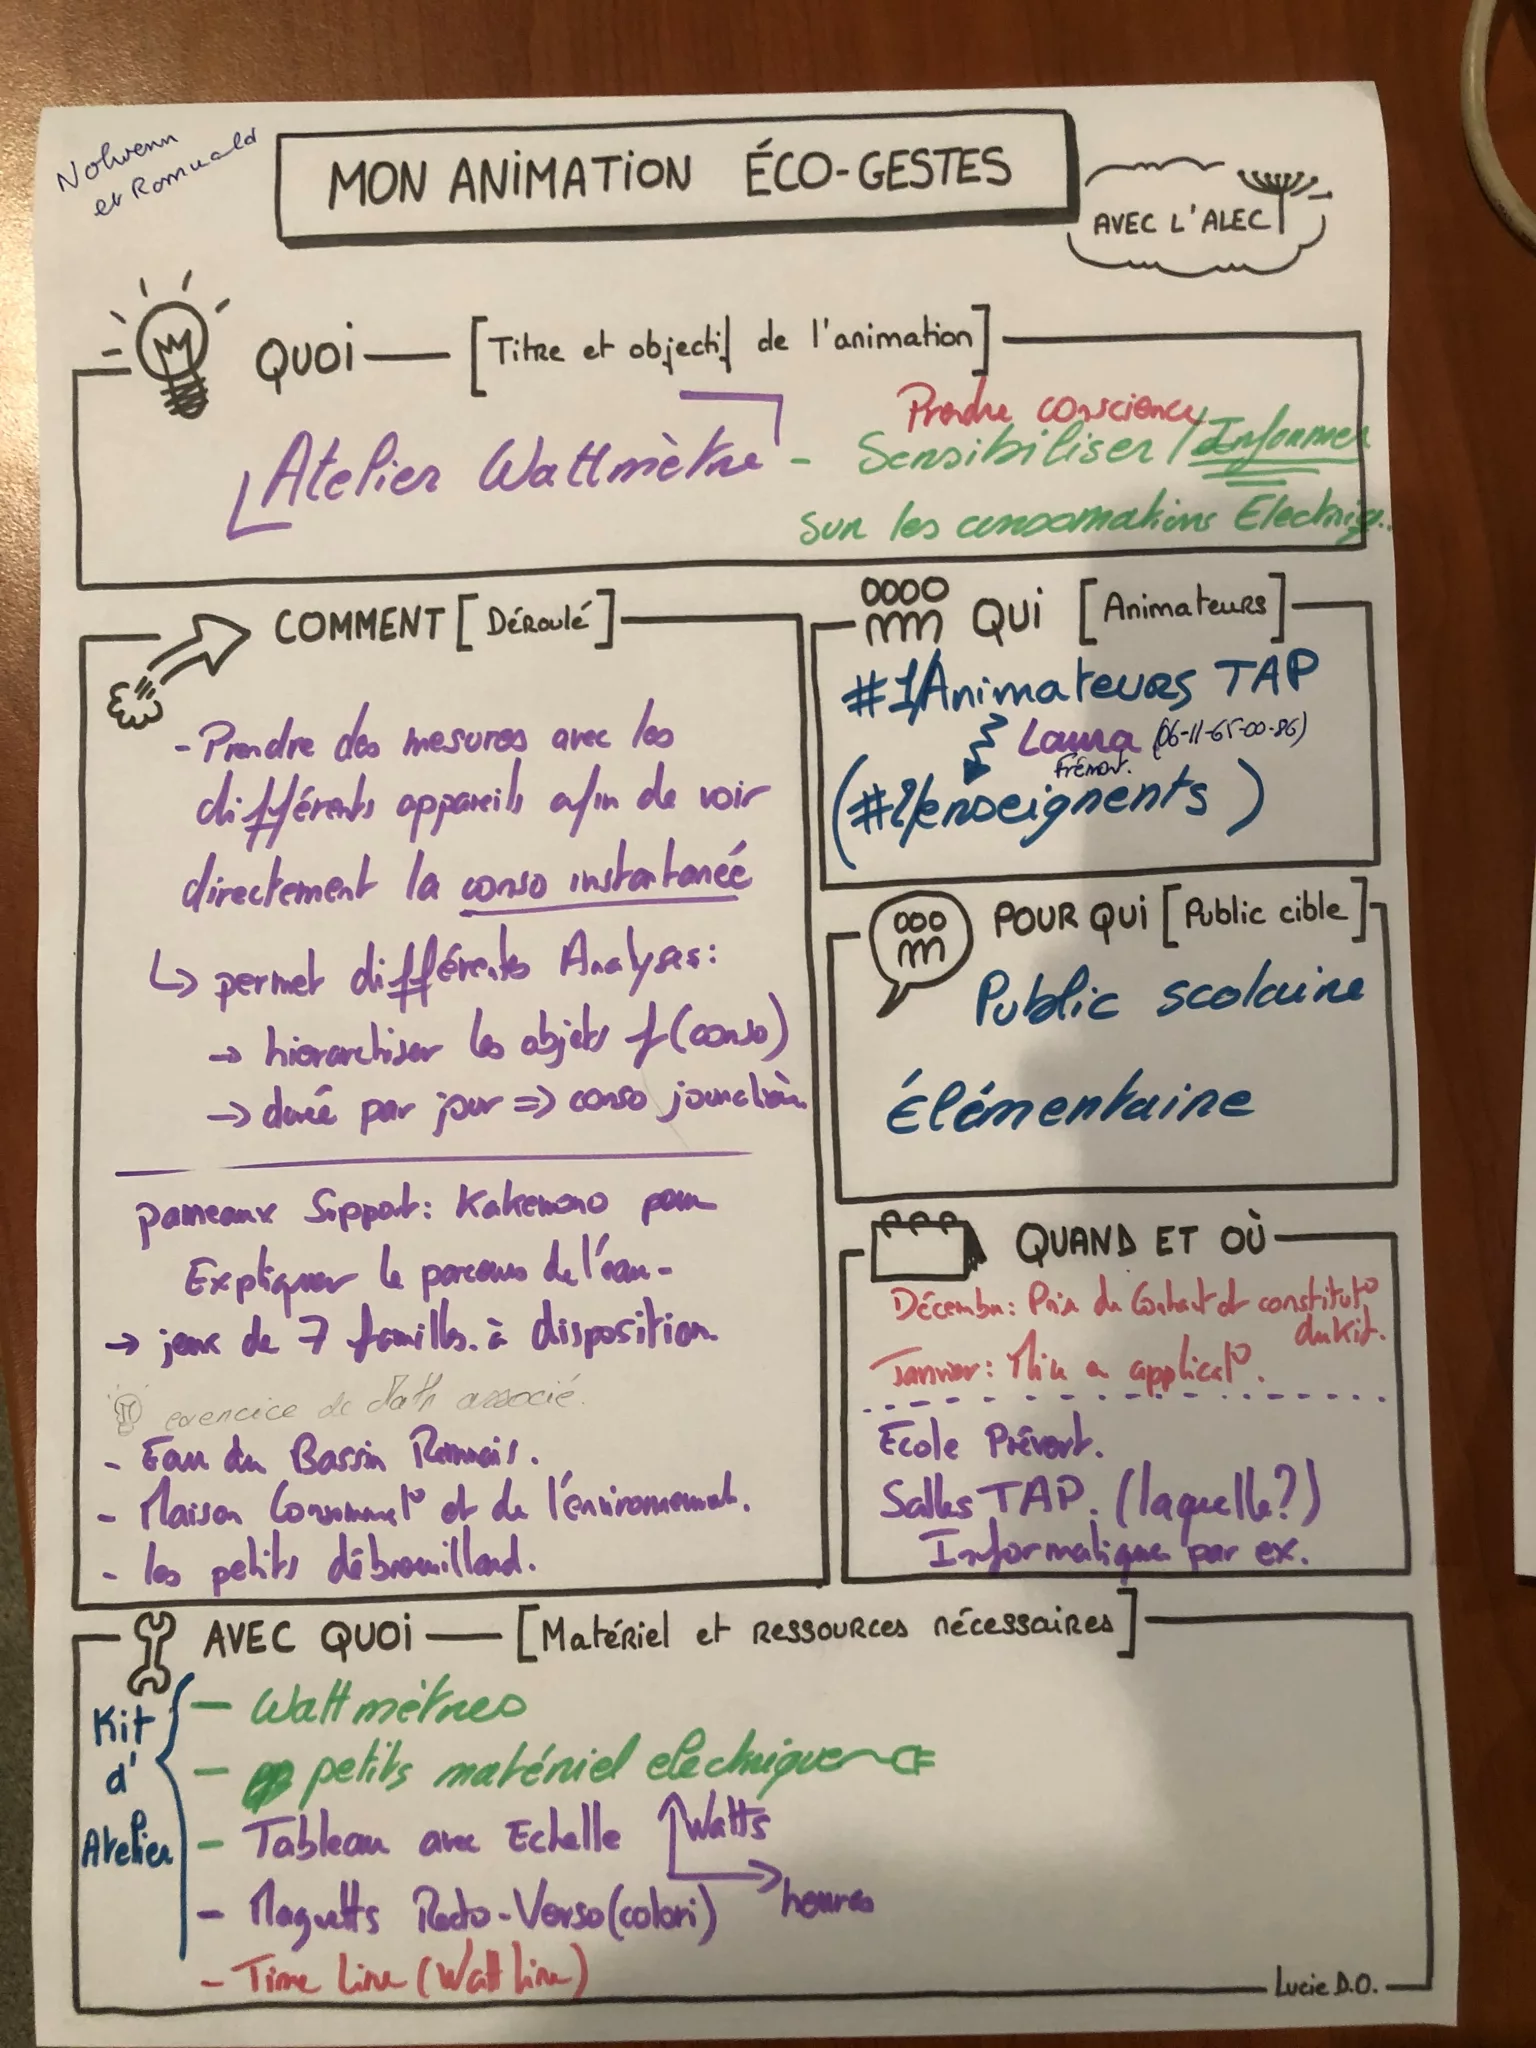 Nolwenn
et Romuald
MON ANIMATION ÉCO-GESTES
AVEC L'ALEC
QUOI [Titre et objectif de l'animation]
Prendre conscience
Atelier Wattmètre - Sensibiliser / Informer
sur les consomations Electriq.
COMMENT [Déroulé]
- Prendre des mesures avec les
différents appareils afin de voir
directement la conso instantanéé
↳ permet différentes Analyses:
→ hierarchiser les objets f(conso)
→ durée par jour => conso journalièr
panneaux Support: Kakemono pour
Expliquer le parcours de l'eau-
→ jeux de 7 familles. à disposition.
exercice de Math associé.
- Eau du Bassin Rennais.
- Maison Consommat° et de l'environnement.
- les petits débrouillard.
QUI [Animateurs]
#1/Animateurs TAP
Laura (06-11-65-00-86)
Frémont.
(#2/enseignents)
POUR QUI [Public cible]
Public scolaire
Élémentaire
QUAND ET OÙ
Décembre: Prise de Contact et constitut°
du kit.
Janvier: Mise en applicat°.
Ecole Prévert.
Salles TAP. (laquelle?)
Informatique par ex.
AVEC QUOI [Matériel et ressources nécessaires]
Kit
d'
Atelier
- Wattmètres
- petits matériel electrique
- Tableau avec Echelle Watts
heures
- Maquetts Recto-Verso (colori)
- Time Line (Watt line)
Lucie D.O.